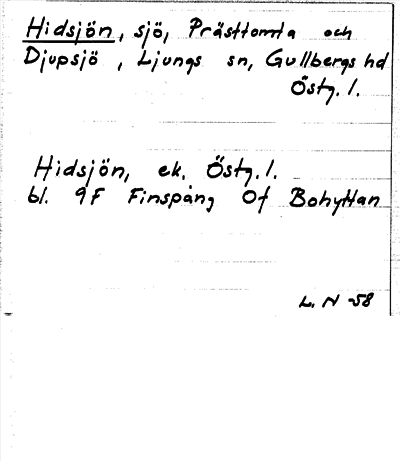 Hidsjön, sjö, Prästtomta och
Djupsjö, Ljungs sn, Gullbergs hd
Östg. l.
Hidsjön, ek. Östg. l.
bl. 9F Finspång Of Bohyttan
L. N -58